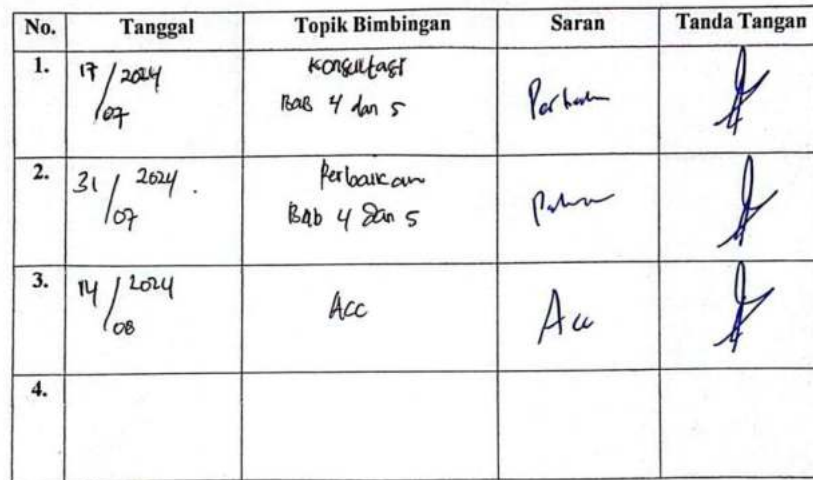 No. Tanggal Topik Bimbingan Saran Tanda Tangan
1. 17/07 2024 Konsultasi
Bab 4 dan 5
2. 31/07 2024. Perbaikan
Bab 4 dan 5
3. 14/08 2024 Acc Acc
4.